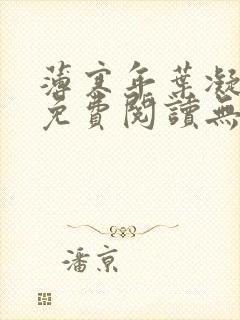 薄寒年葉凝
免費閱讀無
潘京